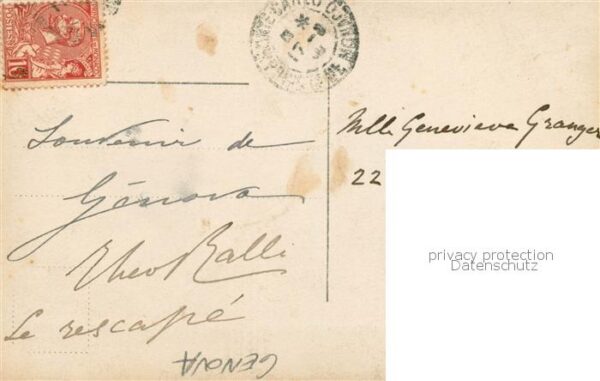 MONTE-CARLO
Souvenir de
Génova
Theo Ralli
Le rescapé
GENOVA
Mlle Genevieve Granger
22
privacy protection
Datenschutz